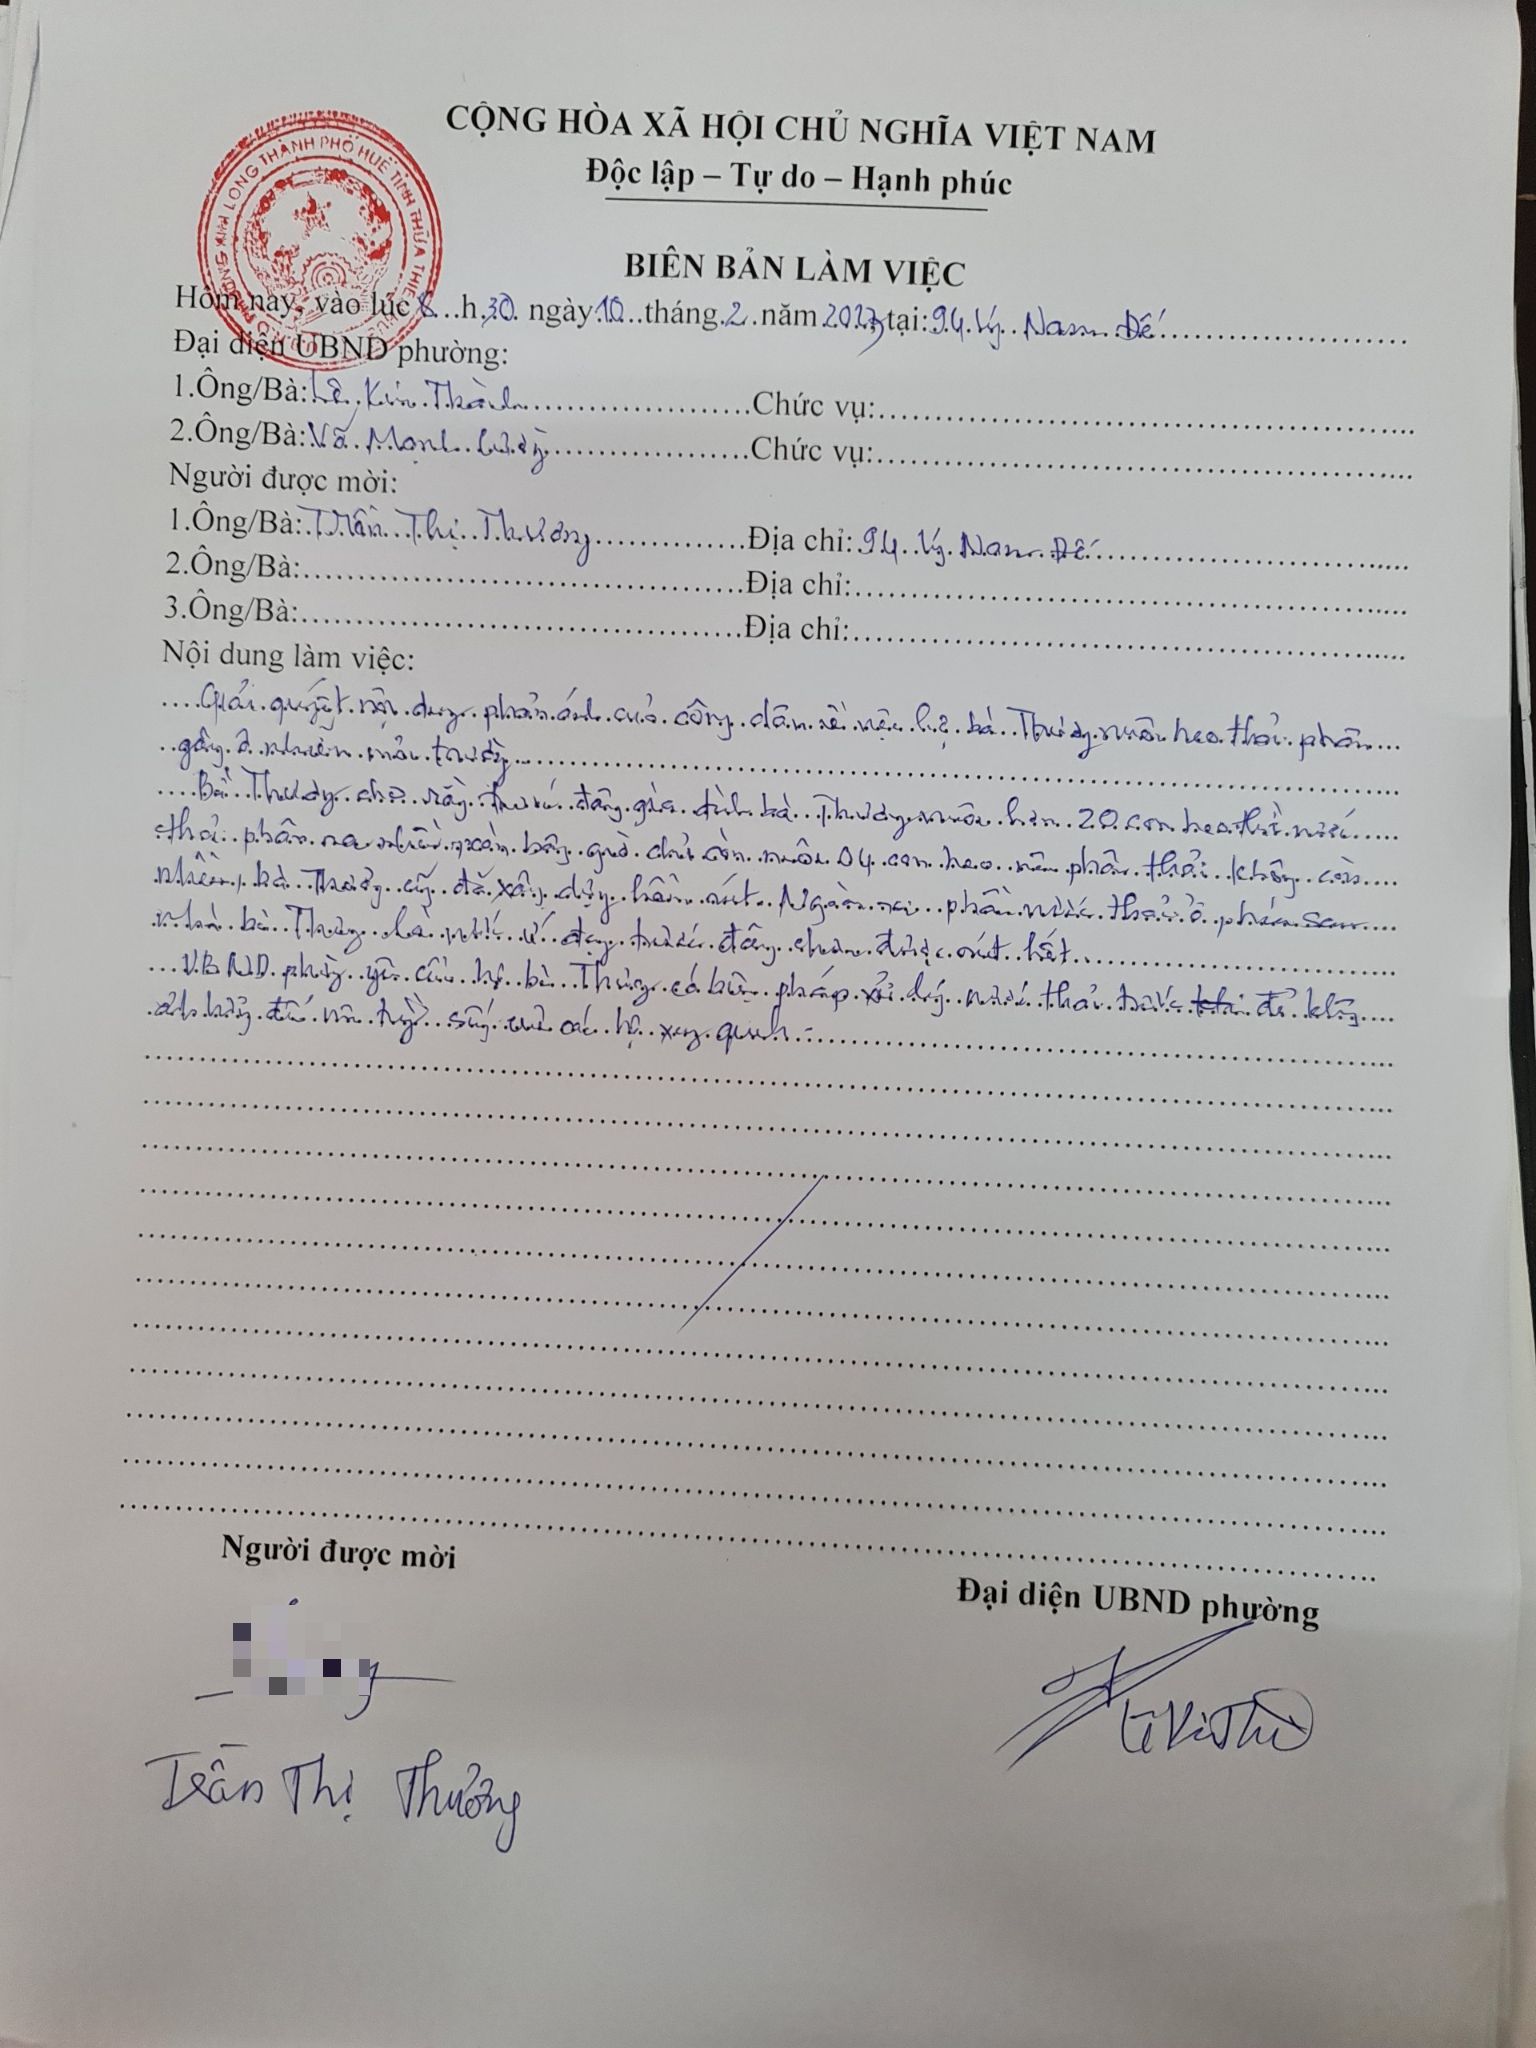 CỘNG HÒA XÃ HỘI CHỦ NGHĨA VIỆT NAM
Độc lập – Tự do – Hạnh phúc
PHƯỜNG KIM LONG THÀNH PHỐ HUẾ TỈNH THỪA THIÊN HUẾ
BIÊN BẢN LÀM VIỆC
Hôm nay, vào lúc 8 h 30 ngày 10 tháng 2 năm 2023 tại: 94 Lý Nam Đế
Đại diện UBND phường:
1.Ông/Bà: Lê Kim Thành Chức vụ:
2.Ông/Bà: Võ Mạnh Cường Chức vụ:
Người được mời:
1.Ông/Bà: Trần Thị Thương Địa chỉ: 94 Lý Nam Đế
2.Ông/Bà: Địa chỉ:
3.Ông/Bà: Địa chỉ:
Nội dung làm việc:
Giải quyết nội dung phản ánh của công dân về việc hộ bà Thương nuôi heo thải phân
gây ô nhiễm môi trường
Bà Thương cho rằng trước đây gia đình bà Thương nuôi hơn 20 con heo thì nước
thải phân ra nhiều, bây giờ chỉ còn nuôi 04 con heo nên phân thải không còn
nhiều, bà Thương cũng đã xây dựng hầm rút. Ngoài ra phần nước thải ở phía sau
nhà bà Thương là nước ứ đọng trước đây chưa được rút hết
UBND phường yêu cầu hộ bà Thương có biện pháp xử lý nước thải để không
ảnh hưởng đến môi trường sống của các hộ xung quanh
Người được mời
Đại diện UBND phường
Trần Thị Thương